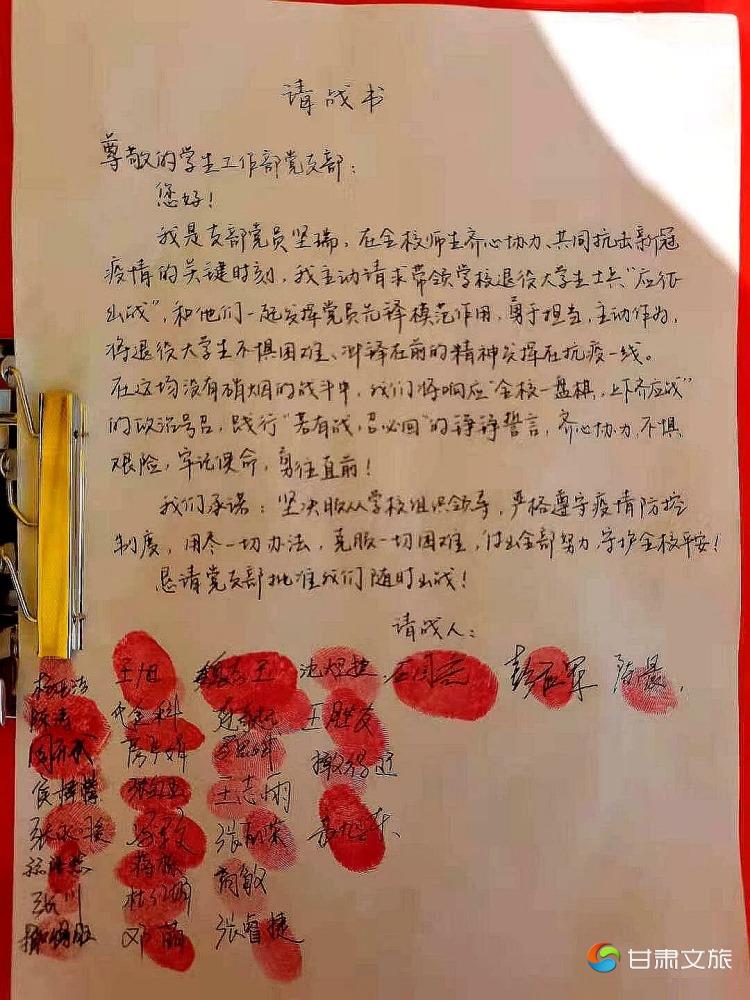 请战书
尊敬的学生工作部党支部：
您好！
我是支部党员坚瑞，在全校师生齐心协力、共同抗击新冠
疫情的关键时刻，我主动请求带领学校退役大学生士兵“应征
出战”，和他们一起发挥党员先锋模范作用，勇于担当，主动作为，
将退役大学生不惧困难、冲锋在前的精神发挥在抗疫一线。
在这场没有硝烟的战斗中，我们将响应“全校一盘棋，上下齐应战”
的政治号召，践行“若有战，召必回”的铮铮誓言，齐心协力，不惧
艰险，牢记使命，勇往直前！
我们承诺：坚决服从学校组织领导，严格遵守疫情防控
制度，用尽一切办法，克服一切困难，付出全部努力，守护全校平安！
恳请党支部批准我们随时出战！
请战人：
王旭
陈晨
王胜友
王志雨
张川
邓菌
张睿捷
甘肃文旅